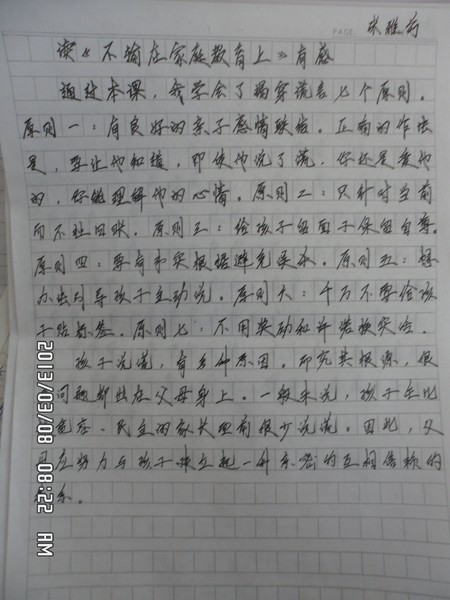 林雅
PAGE
读《不输在家庭教育上》有感
通过本课，我学会了揭穿谎言七个原则。
原则一：有良好的亲子感情联结。正确的作法
是，要让他知道，即使他说了谎，你还是爱他
的，你能理解他的心情。原则二：只针对当前
而不翻旧账。原则三：给孩子留面子保留自尊。
原则四：要有事实根据避免莫。原则五：想
办法引导孩子主动说。原则六：千万不要给孩
子贴标签。原则七：不用奖励和许诺换实话。
孩子说谎，有多种原因。研究其根源，很
问题都出在父母身上。一般来说，孩子在比
宽容、民主的家长面前很少说谎。因此，父
应努力与孩子建立起一种亲密的互相信赖的
系。
2013/03/08 08:22 AM